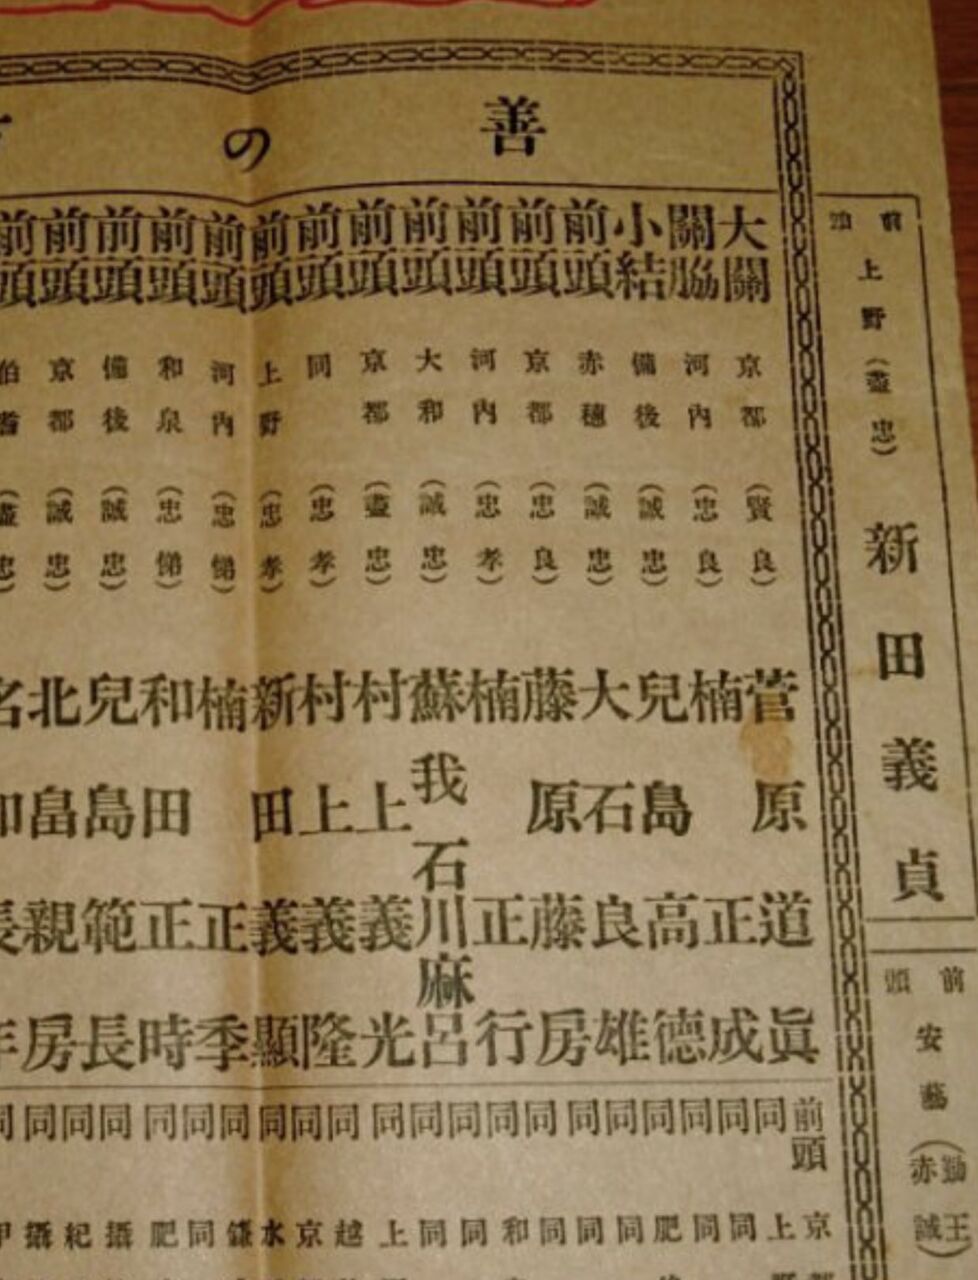 善の
大關 京都 (賢良) 菅原道眞
關脇 河内 (忠良) 楠正成
小結 備後 (誠忠) 兒島高德
前頭 赤穗 (誠忠) 大石良雄
前頭 京都 (忠良) 藤原藤房
前頭 河内 (忠孝) 楠正行
前頭 大和 (誠忠) 蘇我石川麻呂
前頭 京都 (盡忠) 村上義光
前頭 同 (忠孝) 村上義隆
前頭 上野 (忠孝) 新田義顯
前頭 河内 (忠悌) 楠正季
前頭 和泉 (忠悌) 和田正時
前頭 備後 (誠忠) 兒島範長
前頭 京都 (誠忠) 北畠親房
前頭 伯耆 (盡忠) 名和長年
前頭 京
同 上野
同 同
同 同
同 肥
同 同
同 同
同 同
同 和
同 同
同 同
同 上
同 越
同 京
同 水
同 鎌
同 同
同 肥
同 攝
同 紀
同 攝
同 甲
前頭 上野 (盡忠) 新田義貞
前頭 安藝 (勤王赤誠)